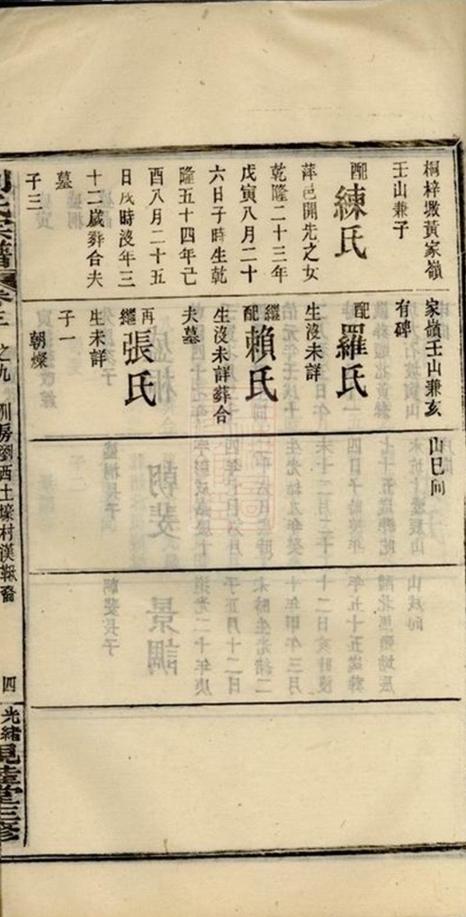 桐梓墩黃家嶺
壬山兼子
配練氏
萍邑開先之女
乾隆二十三年
戊寅八月二十
六日子時生乾
隆五十四年己
酉八月二十五
日戌時沒年三
十二歲葬合夫
墓
子三
家嶺壬山兼亥
有碑
配羅氏
生沒未詳
繼配賴氏
生沒未詳葬合
夫墓
再繼張氏
生未詳
子一
朝燦
山巳向
卷三之九
訓房瀏西土壕村漢
裔
四
光緒
堂三修